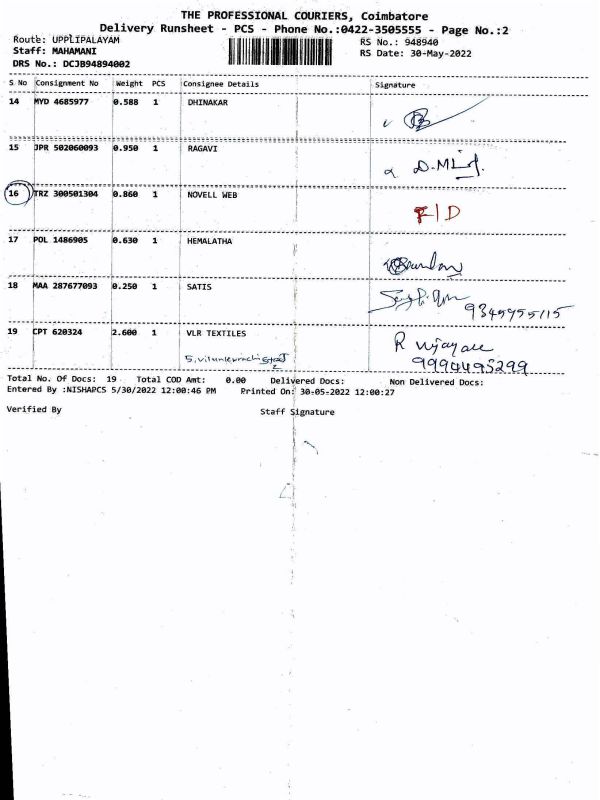 THE PROFESSIONAL COURIERS, Coimbatore
Delivery Runsheet - PCS - Phone No.:0422-3505555 - Page No.:2
Route: UPPLIPALAYAM RS No.: 948940
Staff: MAHAMANI RS Date: 30-May-2022
DRS No.: DCJB94894002
S No Consignment No Weight PCS Consignee Details Signature
14 MYD 4685977 0.588 1 DHINAKAR
15 JPR 502060093 0.950 1 RAGAVI
16 TRZ 300501304 0.860 1 NOVELL WEB
F/D
17 POL 1486905 0.630 1 HEMALATHA
18 MAA 287677093 0.250 1 SATIS
9345955115
19 CPT 620324 2.600 1 VLR TEXTILES
R Vijayale
9994493299
Total No. Of Docs: 19 Total COD Amt: 0.00 Delivered Docs: Non Delivered Docs:
Entered By :NISHAPCS 5/30/2022 12:00:46 PM Printed On: 30-05-2022 12:00:27
Verified By Staff Signature